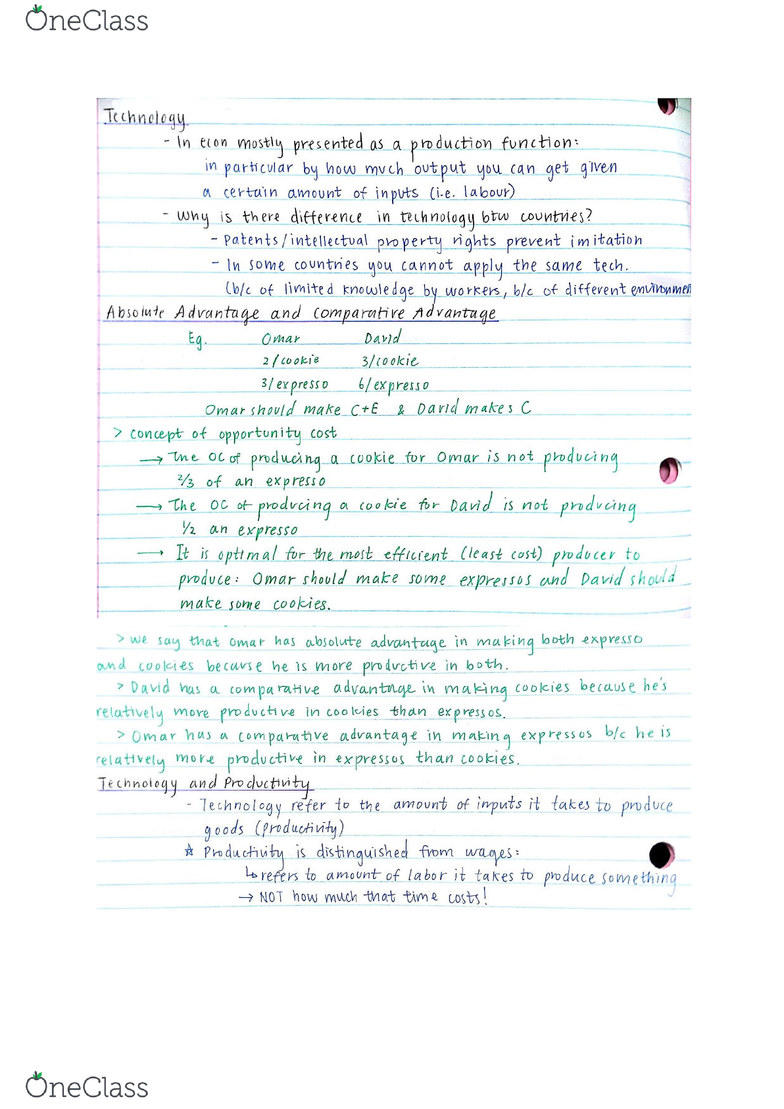 OneClass
Technology
- In econ mostly presented as a production function:
in particular by how much output you can get given
a certain amount of inputs (i.e. labour)
- Why is there difference in technology btw countries?
- Patents/intellectual property rights prevent imitation
- In some countries you cannot apply the same tech.
(b/c of limited knowledge by workers, b/c of different environmen
Absolute Advantage and Comparative Advantage
Eg. Omar David
2/cookie 3/cookie
3/expresso 6/expresso
Omar should make C+E & David makes C
> concept of opportunity cost
→ The OC of producing a cookie for Omar is not producing
2/3 of an expresso
→ The OC of producing a cookie for David is not producing
1/2 an expresso
→ It is optimal for the most efficient (least cost) producer to
produce: Omar should make some expressos and David should
make some cookies.
> we say that Omar has absolute advantage in making both expresso
and cookies because he is more productive in both.
> David has a comparative advantage in making cookies because he's
relatively more productive in cookies than expressos.
> Omar has a comparative advantage in making expressos b/c he is
relatively more productive in expressos than cookies.
Technology and Productivity
- Technology refer to the amount of inputs it takes to produce
goods (productivity)
☆ Productivity is distinguished from wages:
↳ refers to amount of labor it takes to produce something
→ NOT how much that time costs!
OneClass